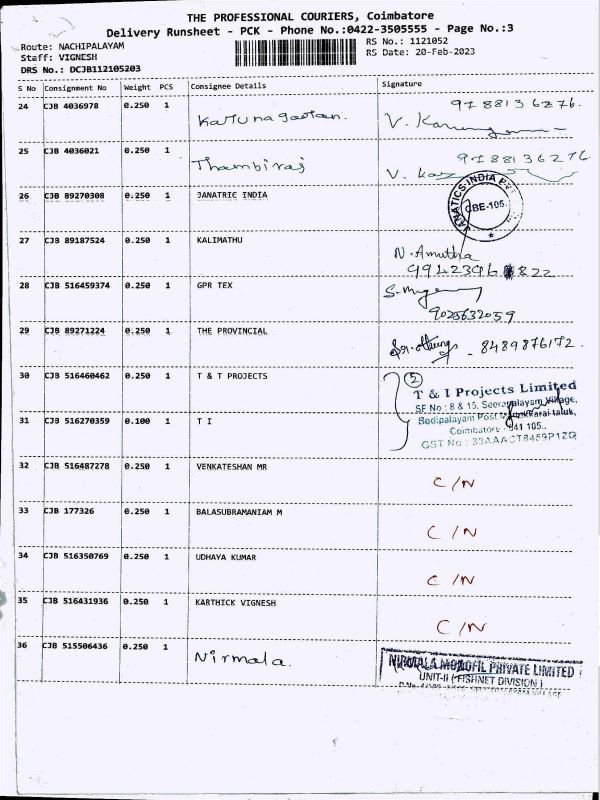 THE PROFESSIONAL COURIERS, Coimbatore
Delivery Runsheet - PCK - Phone No.:0422-3505555 - Page No.:3
Route: NACHIPALAYAM RS No.: 1121052
Staff: VIGNESH RS Date: 20-Feb-2023
DRS No.: DCJB112105203
S No Consignment No Weight PCS Consignee Details Signature
24 CJB 4036978 0.250 1 Karunagaetan. 9188136276.
V.
25 CJB 4036021 0.250 1 Thambiraj 9188136276
V.
26 CJB 89270308 0.250 1 JANATRIC INDIA CBE-105
27 CJB 89187524 0.250 1 KALIMATHU N. Amutha
28 CJB 516459374 0.250 1 GPR TEX
9025632059
29 CJB 89271224 0.250 1 THE PROVINCIAL 8489876172.
30 CJB 516460462 0.250 1 T & T PROJECTS 2
T & I Projects Limited
SF No : 8 & 15, Seerapalayam Village,
31 CJB 516270359 0.100 1 T I Bodipalayam Post, taluk,
Coimbatore - 641 105..
GST No : 33AAACT8459P1ZQ
32 CJB 516487278 0.250 1 VENKATESHAN MR C/N
33 CJB 177326 0.250 1 BALASUBRAMANIAM M C/N
34 CJB 516350769 0.250 1 UDHAYA KUMAR C/N
35 CJB 516431936 0.250 1 KARTHICK VIGNESH C/N
36 CJB 515506436 0.250 1 Nirmala. NIRMALA MONOFIL PRIVATE LIMITED
UNIT-II (FISHNET DIVISION)